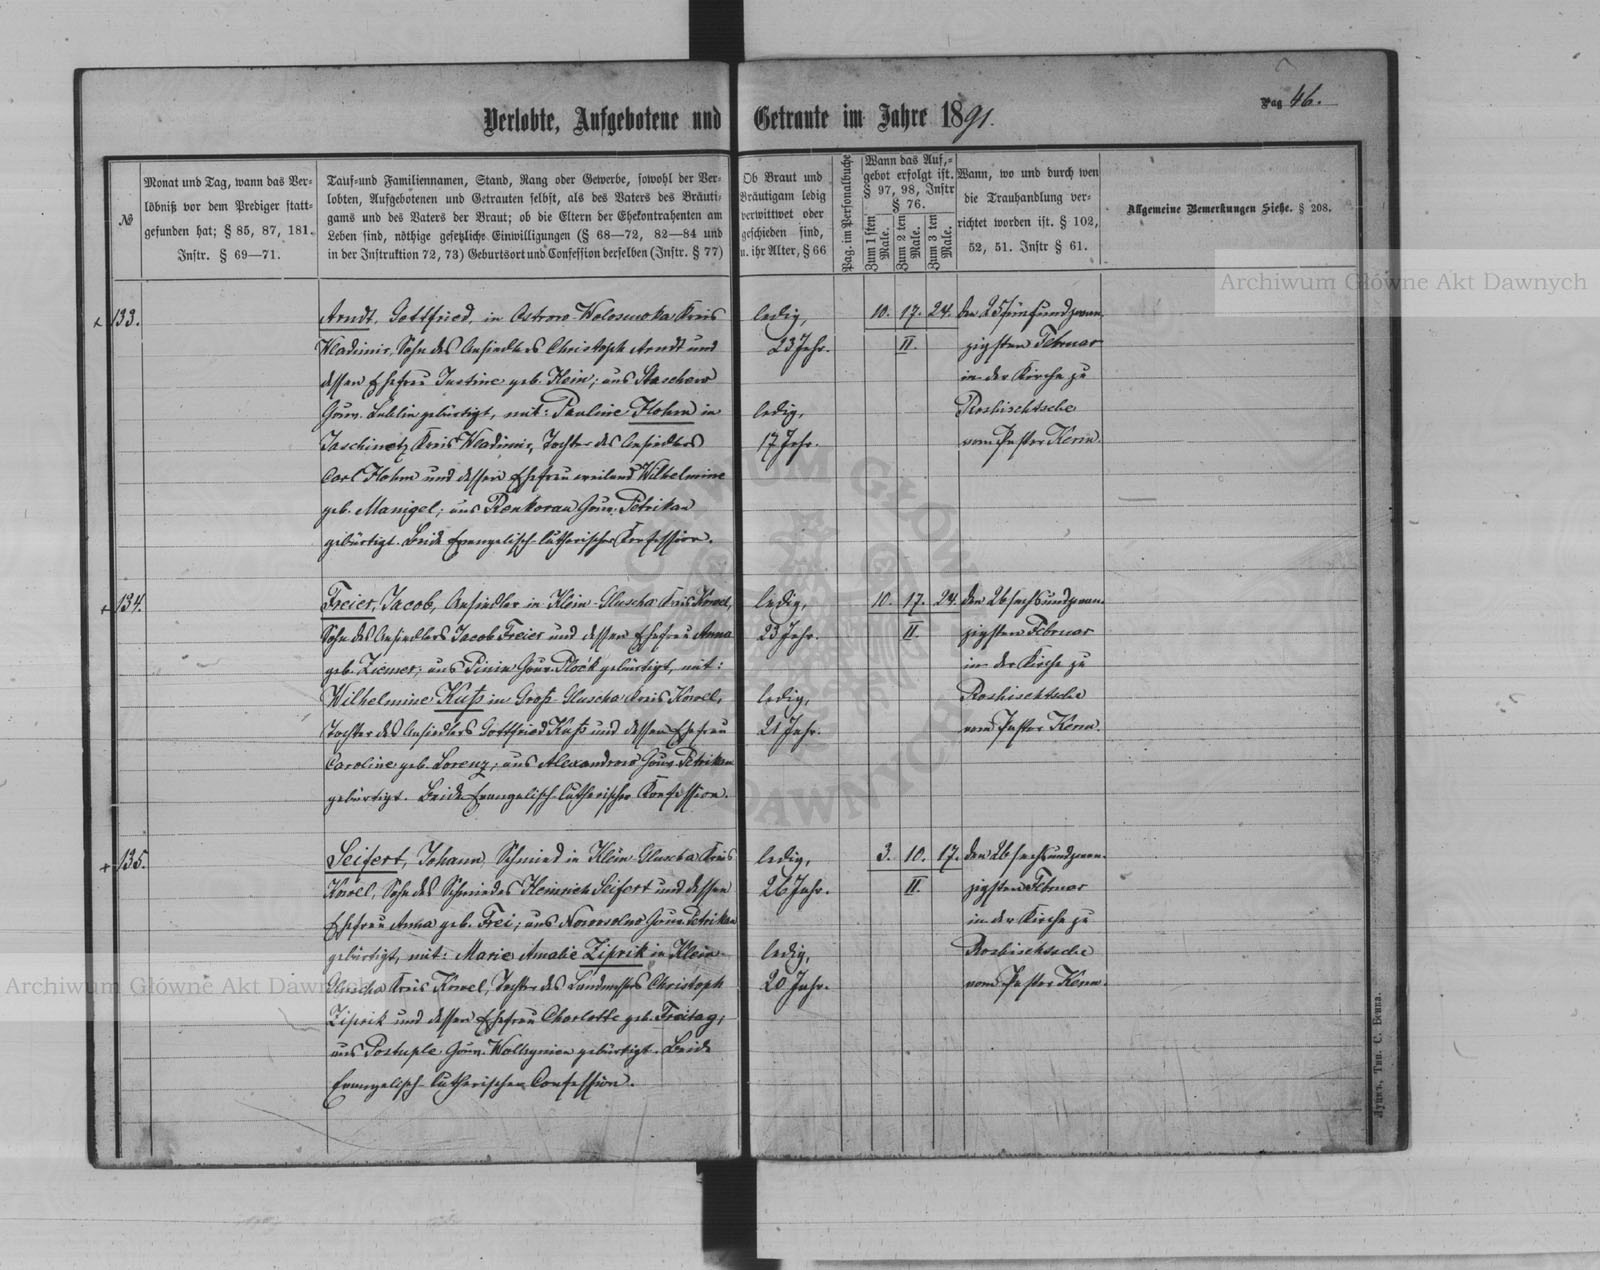 Pag 46.
Verlobte, Aufgebotene und Getraute im Jahre 1891.
№
Monat und Tag, wann das Ver-
löbniß vor dem Prediger statt-
gefunden hat; § 85, 87, 181.
Instr. § 69—71.
Tauf- und Familiennamen, Stand, Rang oder Gewerbe, sowohl der Ver-
lobten, Aufgebotenen und Getrauten selbst, als des Vaters des Bräuti-
gams und des Vaters der Braut; ob die Eltern der Ehekontrahenten am
Leben sind, nöthige gesetzliche Einwilligungen (§ 68—72, 82—84 und
in der Instruktion 72, 73) Geburtsort und Confession derselben (Instr. § 77)
Ob Braut und
Bräutigam ledig
verwittwet oder
geschieden sind,
u. ihr Alter, § 66
Pag. im Personalbuche
Wann das Auf-
gebot erfolgt ist.
§ 97, 98, Instr
§ 76.
Zum 1sten Male.
Zum 2 ten Male.
Zum 3 ten Male.
Wann, wo und durch wen
die Trauhandlung ver-
richtet worden ist. § 102,
52, 51. Instr § 61.
Allgemeine Bemerkungen Siehe. § 208.
133.
Arndt, Gottfried, in Ostrow-Woloswoka Kreis
Wladimir, Sohn des Ansiedlers Christoph Arndt und
dessen Ehefrau Justine geb. Klein; aus Staschew
Gouv. Lublin gebürtigt, mit: Pauline Hohm in
Jaschinetz Kreis Wladimir, Tochter des Ansiedlers
Carl Hohm und dessen Ehefrau weiland Wilhelmine
geb. Manigel; aus Renkorau Gouv. Petrikau
gebürtigt. Beide Evangelisch-lutherischer Konfession.
ledig,
23 Jahr.
ledig,
17 Jahr.
10. 17. 24.
II.
den 25 fünfundzwan-
zigsten Februar
in der Kirche zu
Roshischtsche
vom Pastor Kerm.
134.
Freier, Jacob, Ansiedler in Klein-Gluscha Kreis Kowel,
Sohn des Ansiedlers Jacob Freier und dessen Ehefrau Anna
geb. Ziemer; aus Pinin Gouv. Plock gebürtigt, mit:
Wilhelmine Kuß in Groß-Gluscha Kreis Kowel,
Tochter des Ansiedlers Gottfried Kuß und dessen Ehefrau
Caroline geb. Lorenz; aus Alexandrow Gouv. Petrikau
gebürtigt. Beide Evangelisch-lutherischer Konfession.
ledig,
23 Jahr.
ledig,
21 Jahr.
10. 17. 24.
II.
den 26 sechsundzwan-
zigsten Februar
in der Kirche zu
Roshischtsche
vom Pastor Kerm.
135.
Seifert, Johann Schmied in Klein Gluscha Kreis
Kowel, Sohn des Schmiedes Heinrich Seifert und dessen
Ehefrau Anna geb. Frei; aus Nowosolno Gouv. Petrikau
gebürtigt, mit: Marie Amalie Ziprik in Klein-
Gluscha Kreis Kowel, Tochter des Landwirthes Christoph
Ziprik und dessen Ehefrau Charlotte geb. Freitag;
aus Postuple Gouv. Wolhynien gebürtigt. Beide
Evangelisch-lutherischer Confession.
ledig,
26 Jahr.
ledig,
20 Jahr.
3. 10. 17.
II.
den 26 sechsundzwan-
zigsten Februar
in der Kirche zu
Roshischtsche
vom Pastor Kerm.
Луцкъ, Тип. С. Бенка.
Archiwum Główne Akt Dawnych
Archiwum Główne Akt Dawnych